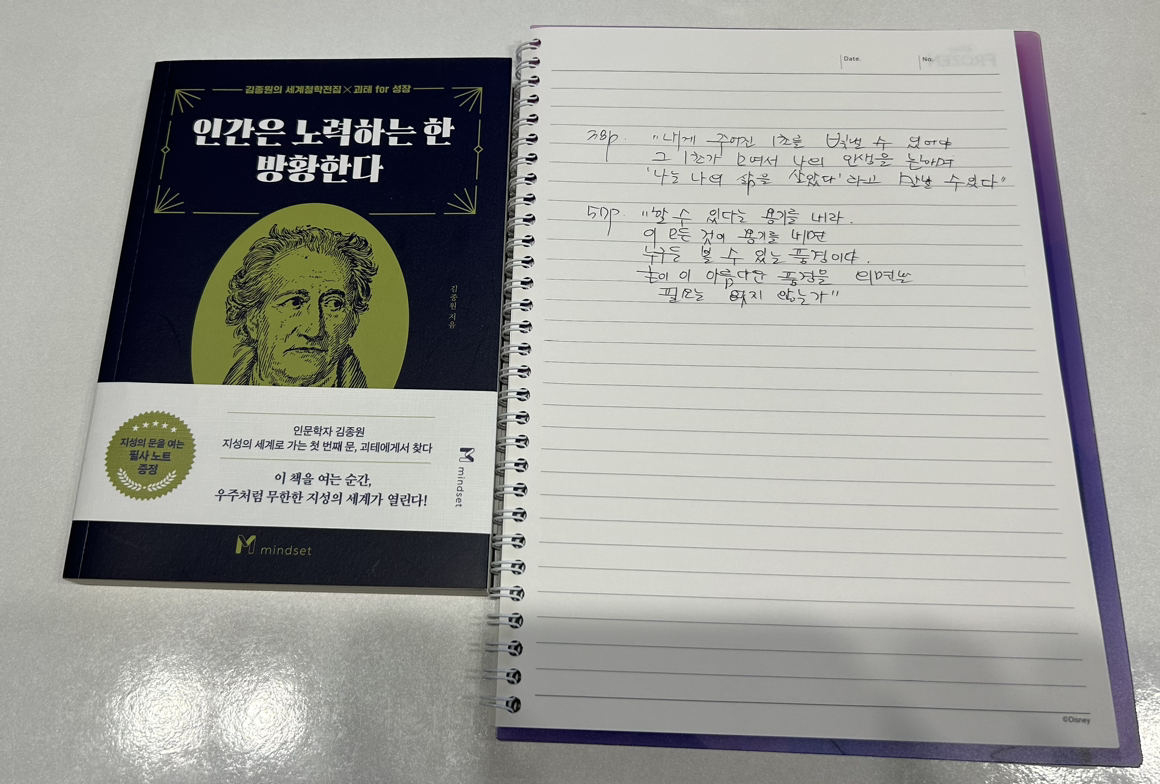 김종원의 세계철학전집×괴테 for 성장
인간은 노력하는 한
방황한다
김종원 지음
지성의 문을 여는
필사 노트
증정
인문학자 김종원
지성의 세계로 가는 첫 번째 문, 괴테에게서 찾다
이 책을 여는 순간,
우주처럼 무한한 지성의 세계가 열린다!
mindset
mindset
Date.
No.
FROZEN
38p. "내게 주어진 1초를 바꿀 수 있어야
그 1초가 모여서 나의 인생을 논하며
'나는 나의 삶을 살았다'라고 말할 수 있다"
57p. "할 수 있다는 용기를 내라.
이 모든 것이 용기를 내면
누구든 볼 수 있는 풍경이다.
굳이 이 아름다운 풍경을 외면할
필요는 없지 않은가"
©Disney